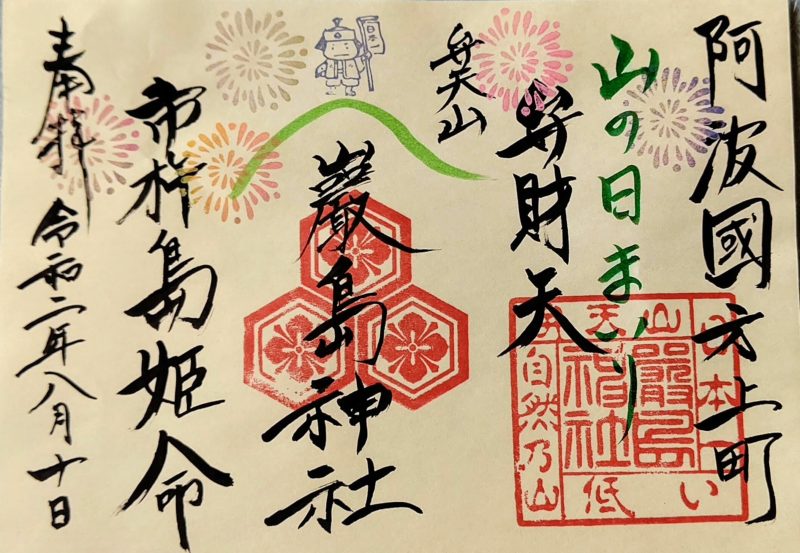 阿波國方上町
山の日まつり
弁財天
弁天山
巌島神社
市杵島姫命
奉拝
令和二年八月十日
日本一
弁天山
嚴島神社
日本一
低い
自然乃山